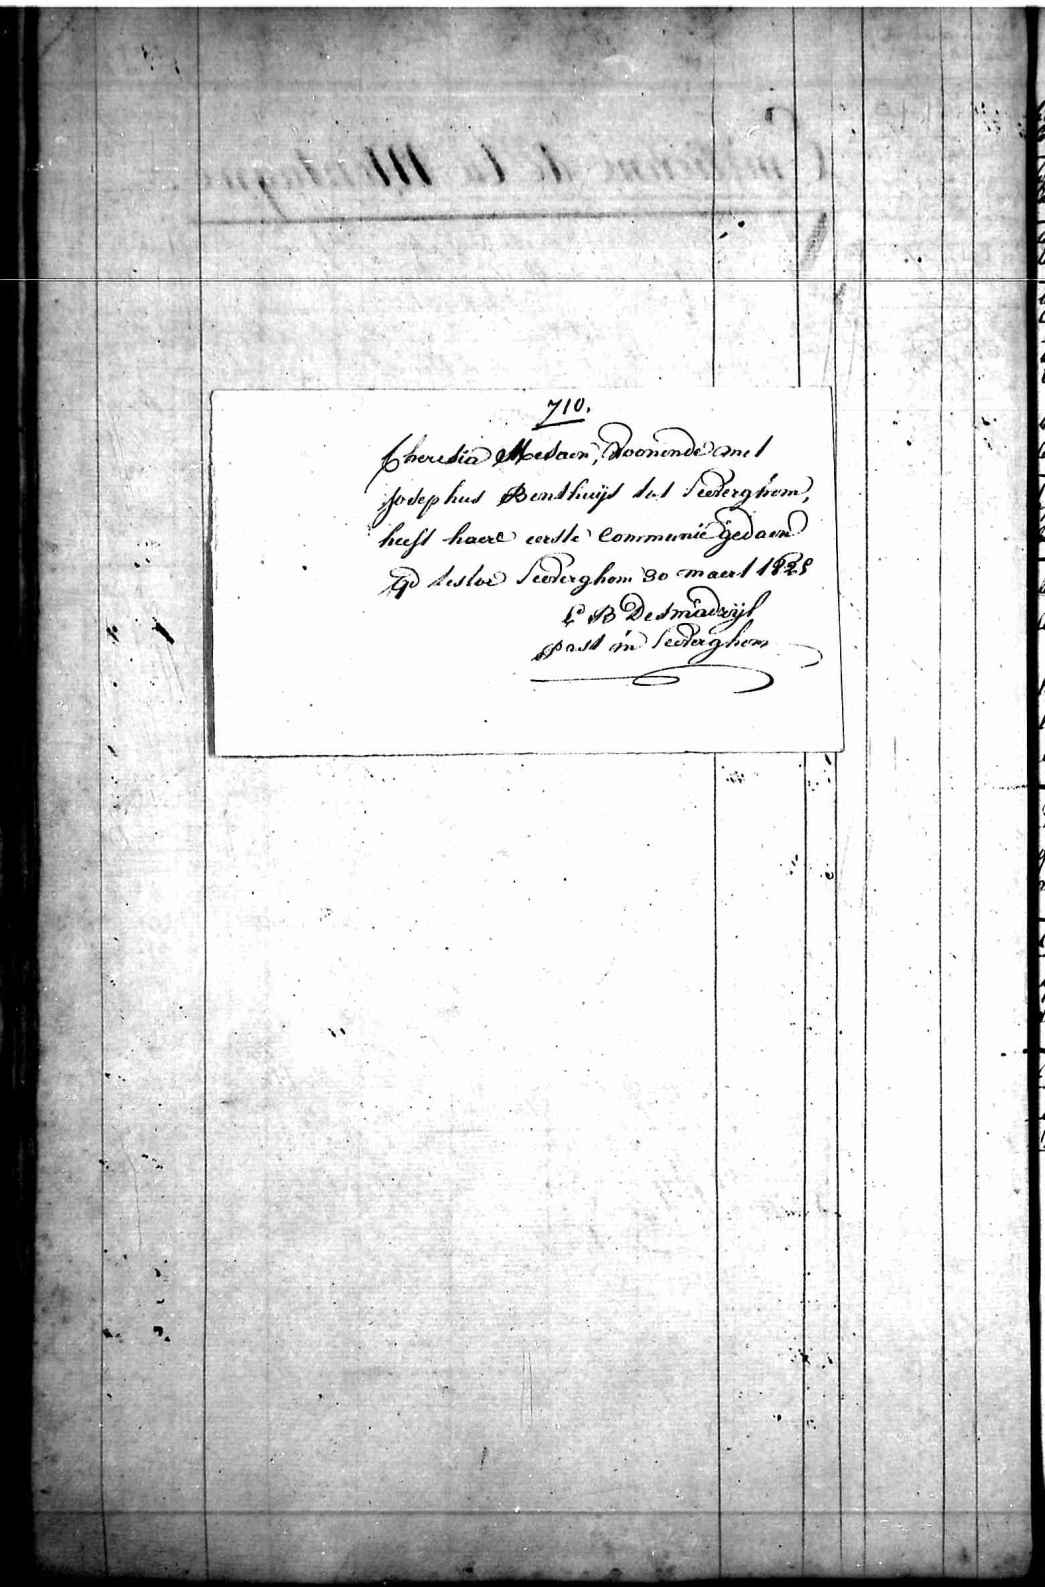 710.
Theresia Mesaen, Woonende met
Josephus Benthuijs tot Sevverghem,
heeft haere eerste Communie gedaen
qd testor Sevverghem 30 maert 1825
C B Desmadrijl
past in Sevverghem